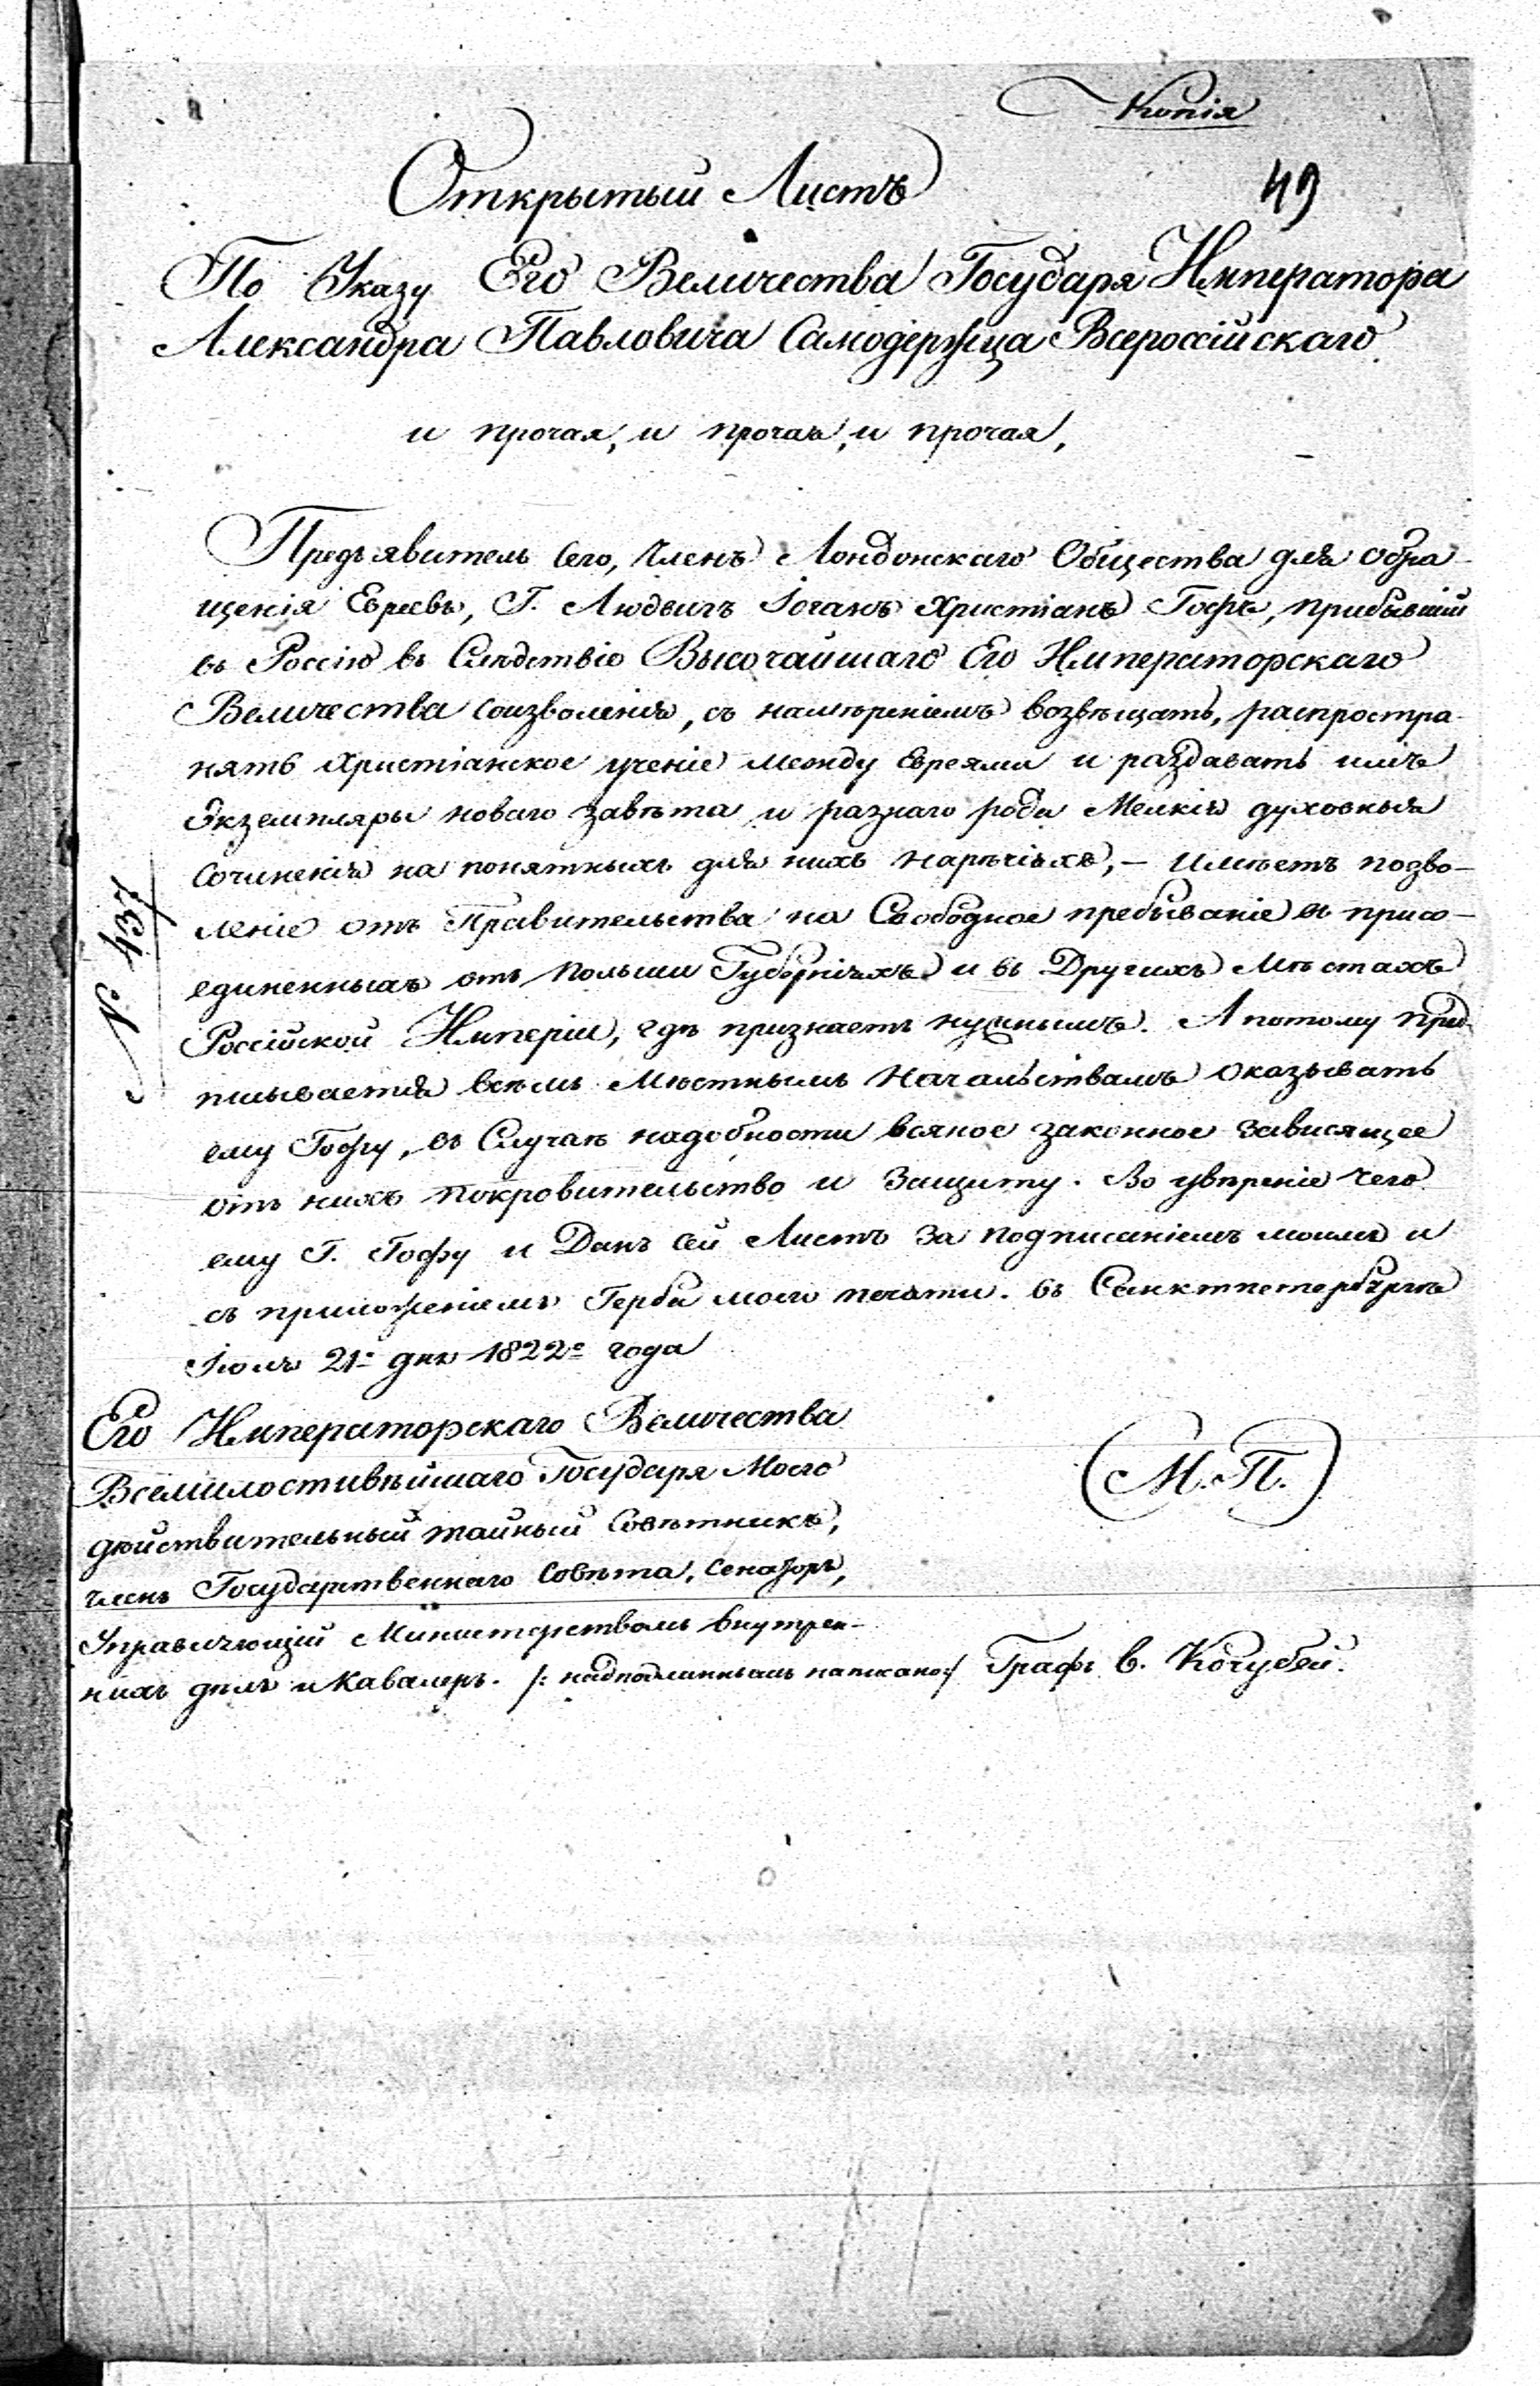 Копія
49
Открытый Листъ
По Указу Его Величества Государя Императора
Александра Павловича Самодержца Всероссійскаго
и прочая, и прочая, и прочая,
Предъявитель сего, Членъ Лондонскаго Общества для обра-
щенія Евреевъ, Г. Людвигъ Іоганъ Христіанъ Гофъ, прибывшій
въ Россію въ Слѣдствіе Высочайшаго Его Императорскаго
Величества соизволенія, съ намѣреніемъ возвѣщать, распростра-
нять Христіанское ученіе между Евреями и раздавать имъ
Экземпляры новаго завѣта и разнаго рода Мелкія духовныя
Сочиненія на понятныхъ для нихъ нарѣчіяхъ, - имѣетъ позво-
леніе отъ Правительства на Свободное пребываніе въ присо-
единенныхъ отъ Польши Губерніяхъ и въ Другихъ Мѣстахъ
Россійской Имперіи, гдѣ признаетъ нужнымъ. А потому пред-
писывается всѣмъ Мѣстнымъ Начальствамъ оказывать
ему Гофу, въ Случаѣ надобности всякое законное зависящее
отъ нихъ покровительство и Защиту. Во увѣреніе чего
ему Г. Гофу и Данъ сей Листъ за подписаніемъ моимъ и
съ приложеніемъ Герба моего печати. въ Санктпетербургѣ
Іюля 21го дня 1822го года
№ 437
Его Императорскаго Величества
Всемилостивѣйшаго Государя Моего
дѣйствительный тайный Совѣтникъ,
членъ Государственнаго Совѣта, Сенаторъ,
Управляющій Министерствомъ внутрен-
нихъ дѣлъ и Кавалеръ. /: на подлинномъ написано:/ Графъ В. Кочубей.
(М. П.)